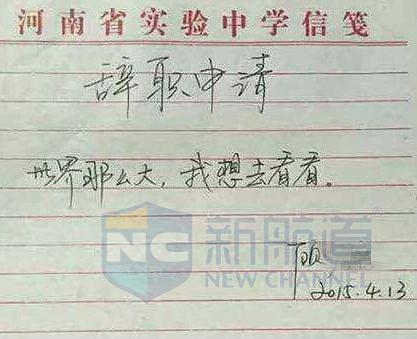 河南省实验中学信笺
辞职申请
世界那么大，我想去看看。
NC 新航道
NEW CHANNEL
顾
2015.4.13